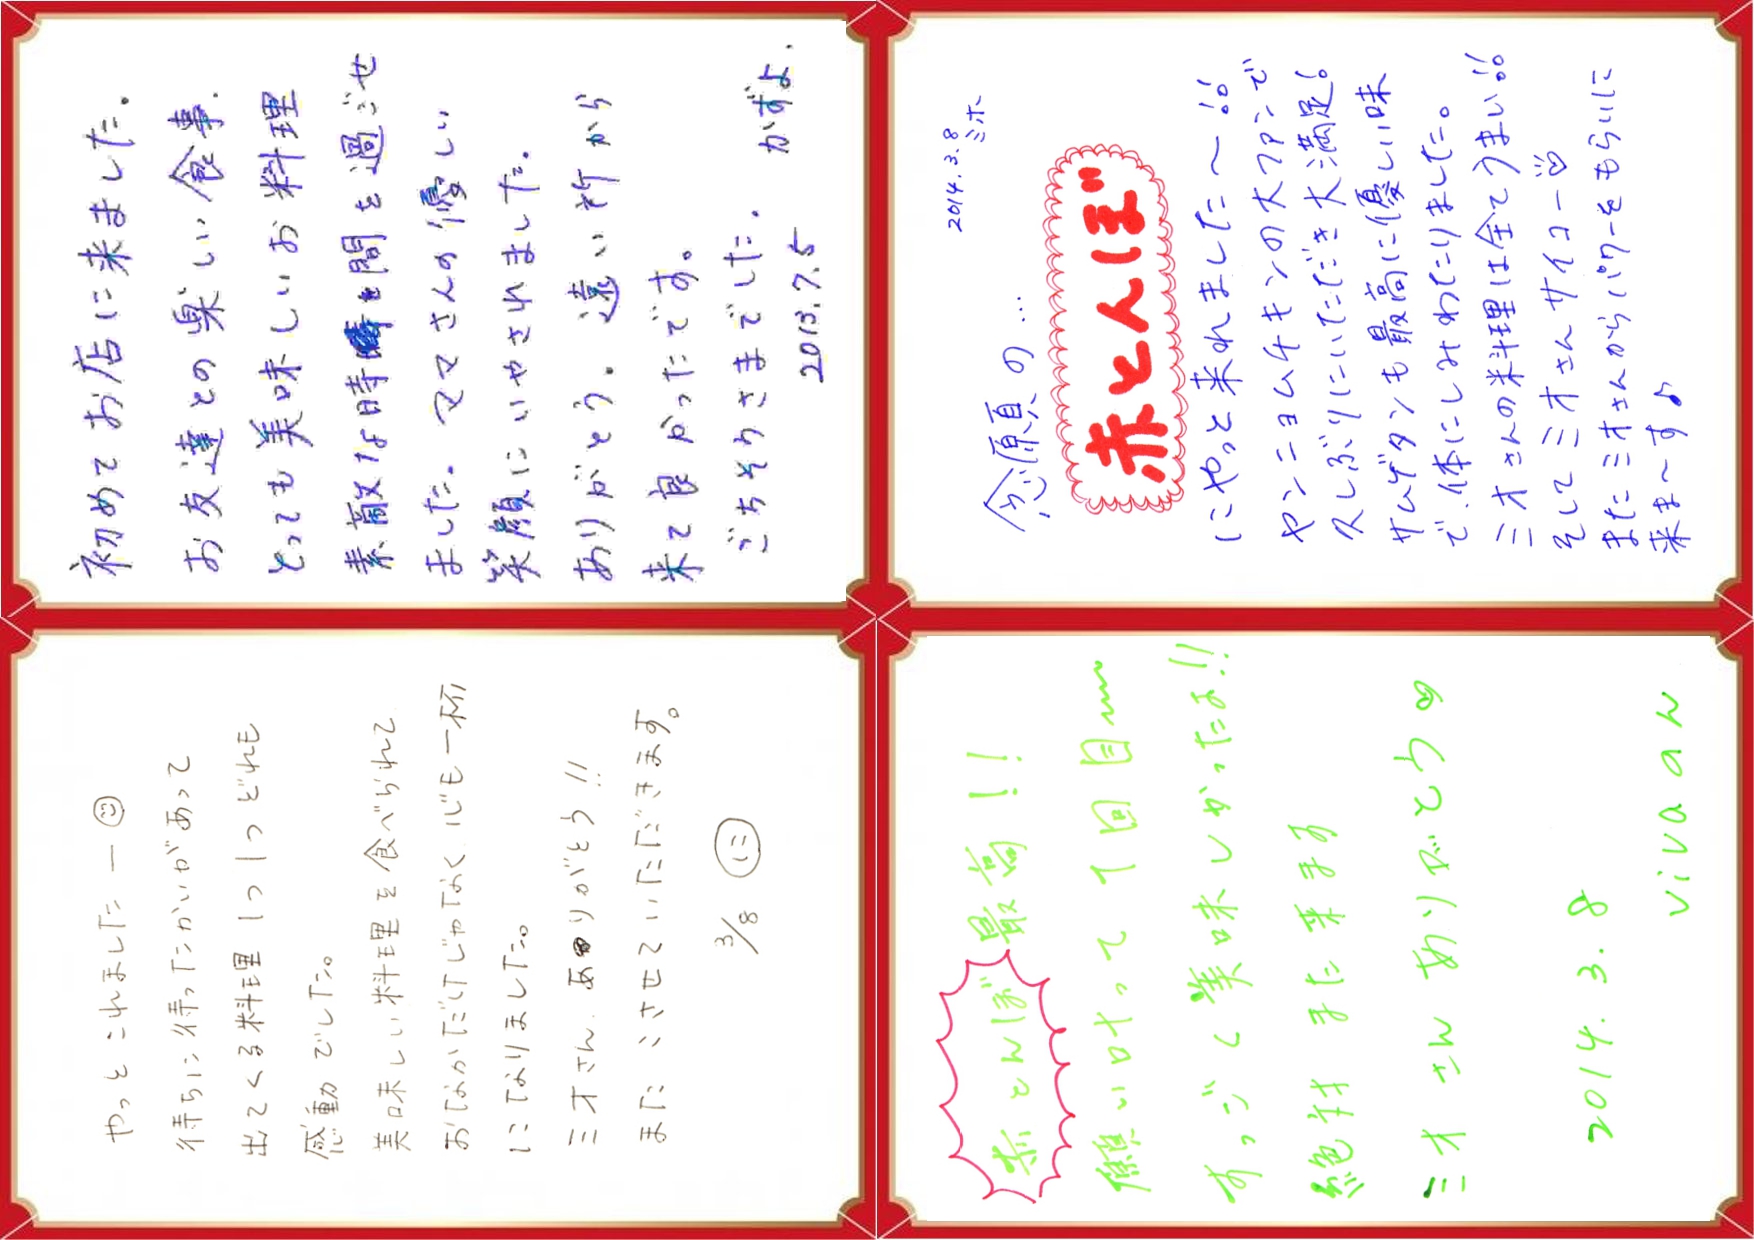 初めてお店に来ました。
お友達との楽しい食事.
とっても美味しいお料理
素敵な時間を過ごせ
ました. ママさんの優しい
笑顔にいやされました。
ありがとう. 遠い所から
来て良かったです。
ごちそうさまでした.
かずよ.
2013.7.5
2014.3.8
ミホ
念願の…
赤とんぼ
にやっと来れました〜!!
ヤンニョムチキンの大ファンで
久しぶりにいただき大満足!
サムゲタンも最高に優しい味
で、体にしみわたりました。
ミオさんの料理は全てうまい!!
そしてミオさんサイコー♡
またミオさんからパワーをもらいに
来ま〜す♪
やっとこれましたー☺
待ちに待ったかいがあって
出てくる料理1つ1つどれも
感動でした。
美味しい料理を食べられて
おなかだけじゃなく心も一杯
になりました。
ミオさん、ありがとう!!
またこさせていただきます。
3/8 に
赤とんぼ 最高!!
願い叶って1回目〜
すっごく美味しかったよ!!
絶対また来まる
ミオさんありがとう♡
2014.3.8
vivaan